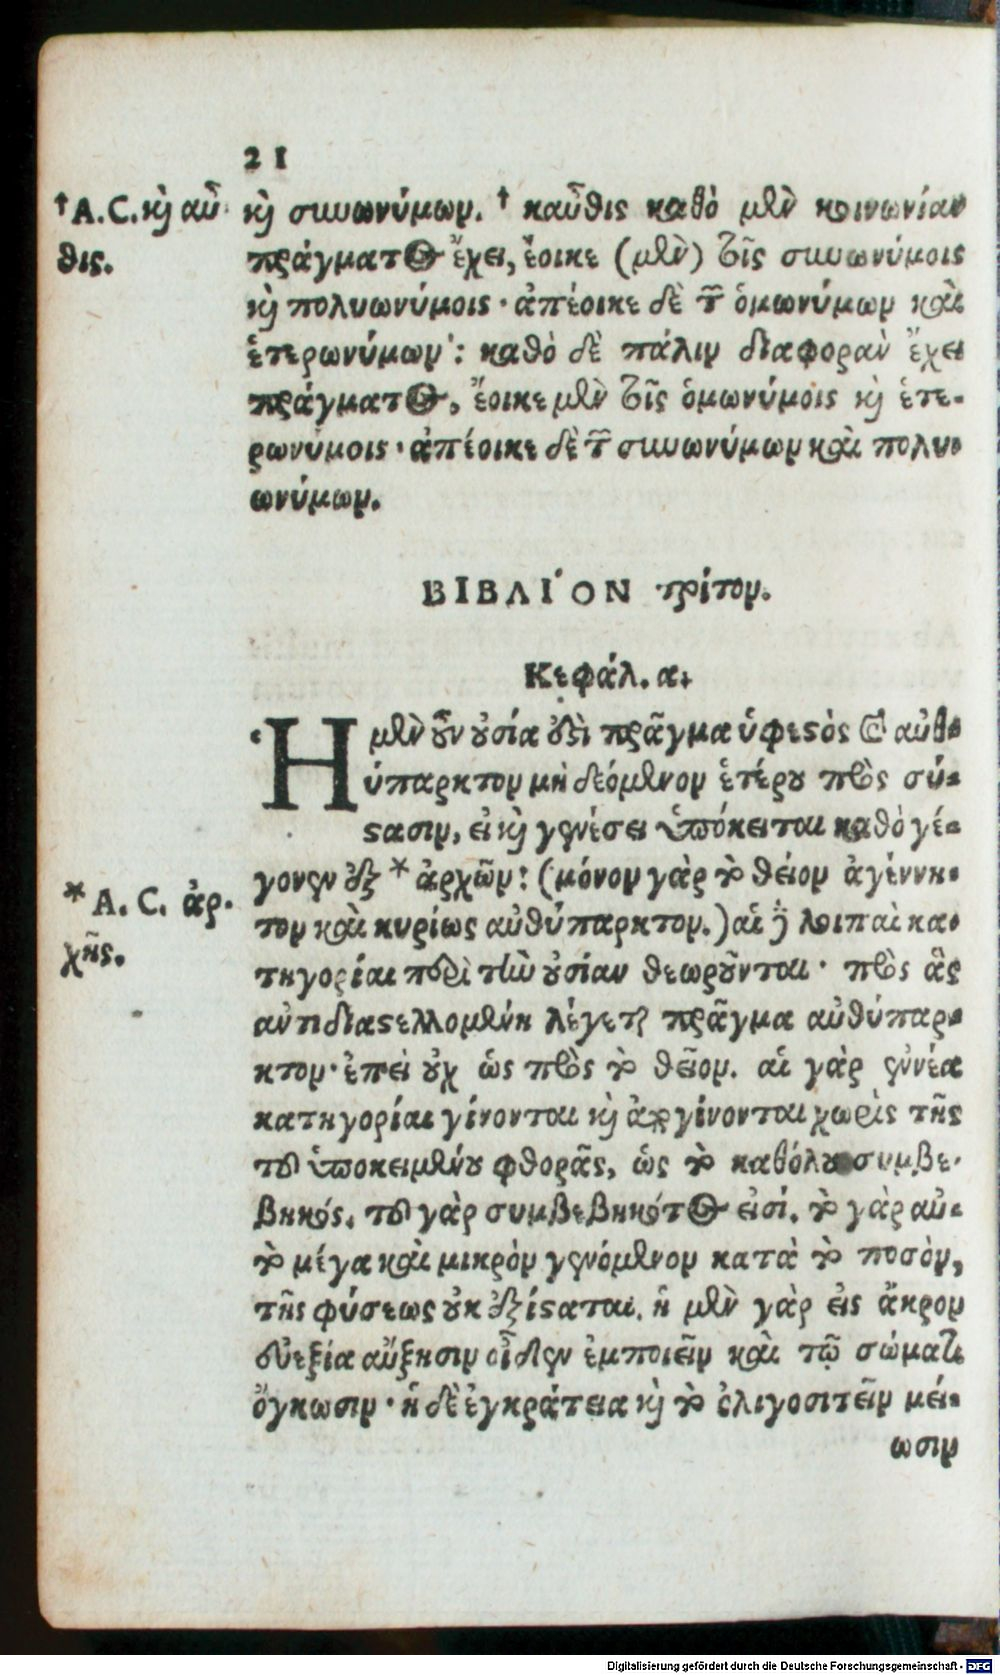 21
† A. C. καὶ αὖ-
θις.
καὶ συνωνύμων. † καὖθις καθὸ μὲν κοινωνίαν
πράγματος ἔχει, ἔοικε (μὲν) τοῖς συνωνύμοις
καὶ πολυωνύμοις· ἀπέοικε δὲ τῶν ὁμωνύμων καὶ
ἑτερωνύμων: καθὸ δὲ πάλιν διαφορὰν ἔχει
πράγματος, ἔοικε μὲν τοῖς ὁμωνύμοις καὶ ἑτε-
ρωνύμοις· ἀπέοικε δὲ τῶν συνωνύμων καὶ πολυ-
ωνύμων.
ΒΙΒΛΙ΄ΟΝ τρίτον.
Κεφάλ. α.
Η μὲν οὖν οὐσία ἐστὶ πρᾶγμα ὑφεστὸς καὶ αὐθ-
ύπαρκτον μὴ δεόμενον ἑτέρου πρὸς σύ-
στασιν, εἰ καὶ γενέσει ὑπόκειται καθὸ γέ-
γονεν ἐξ * ἀρχῶν: (μόνον γὰρ τὸ θεῖον ἀγέννη-
* A. C. ἀρ-
χῆς.
τον καὶ κυρίως αὐθύπαρκτον.) αἱ δὲ λοιπαὶ κα-
τηγορίαι περὶ τὴν οὐσίαν θεωροῦνται· πρὸς ἃς
ἀντιδιαστελλομένη λέγεται πρᾶγμα αὐθύπαρ-
κτον· ἐπεὶ οὐχ ὡς πρὸς τὸ θεῖον. αἱ γὰρ ἐννέα
κατηγορίαι γίνονται καὶ ἀπογίνονται χωρὶς τῆς
τοῦ ὑποκειμένου φθορᾶς, ὡς τὸ καθόλου συμβε-
βηκός. τοῦ γὰρ συμβεβηκότος εἰσί. τὸ γὰρ αὐ-
τὸ μέγα καὶ μικρὸν γενόμενον κατὰ τὸ ποσὸν,
τῆς φύσεως οὐκ ἐξίσταται. ἡ μὲν γὰρ εἰς ἄκρον
εὐεξία αὔξησιν οἶδεν ἐμποιεῖν καὶ τῷ σώματι
ὄγκωσιν· ἡ δὲ ἐγκράτεια καὶ τὸ ὀλιγοσιτεῖν μεί-
ωσιν
Digitalisierung gefördert durch die Deutsche Forschungsgemeinschaft - DFG